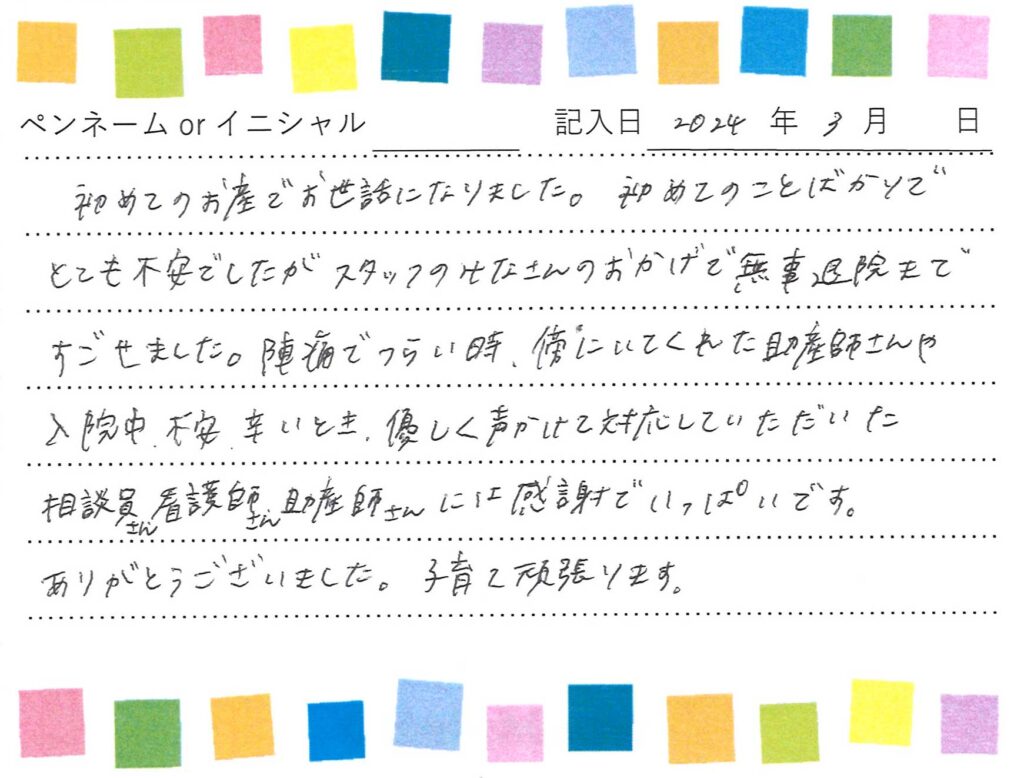 ペンネーム or イニシャル 記入日 2024 年 3 月 日
初めてのお産でお世話になりました。 初めてのことばかりで
とても不安でしたがスタッフのみなさんのおかげで無事退院まで
すごせました。陣痛でつらい時、傍にいてくれた助産師さんや
入院中、不安、辛いとき、優しく声かけて対応していただいた
相談員さん看護師さん助産師さんには感謝でいっぱいです。
ありがとうございました。子育て頑張ります。